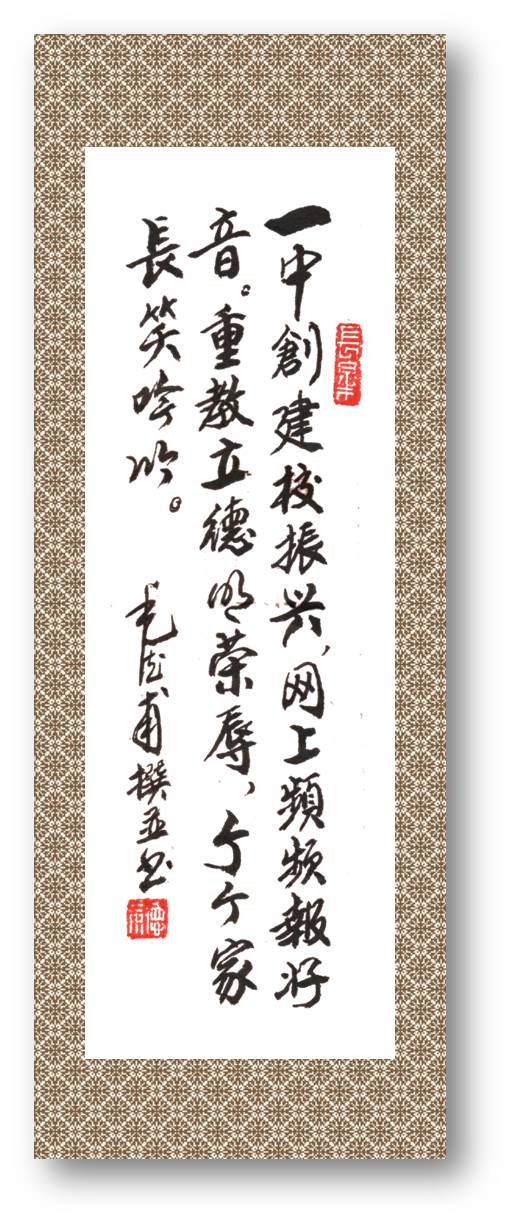 一中創建校振兴，网上頻频報好
音。重教立德明荣辱，个个家
長笑吟吟。
毛德甫撰並书